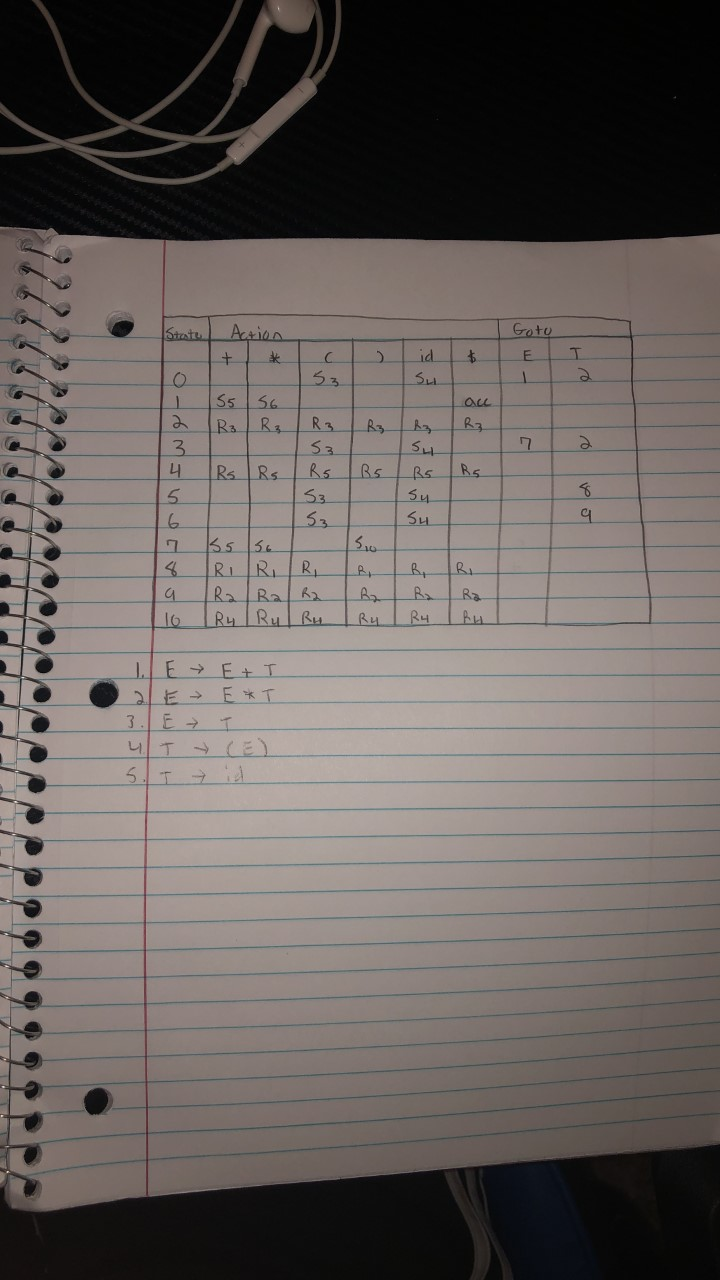 State Action Goto
+ * ( ) id $ E T
0 S3 S4 1 2
1 S5 S6 acc
2 R3 R3 R3 R3 R3 R3
3 S3 S4 7 2
4 R5 R5 R5 R5 R5 R5
5 S3 S4 8
6 S3 S4 9
7 S5 S6 S10
8 R1 R1 R1 R1 R1 R1
9 R2 R2 R2 R2 R2 R2
10 R4 R4 R4 R4 R4 R4
1. E → E + T
2 E → E * T
3. E → T
4. T → (E)
5. T → id